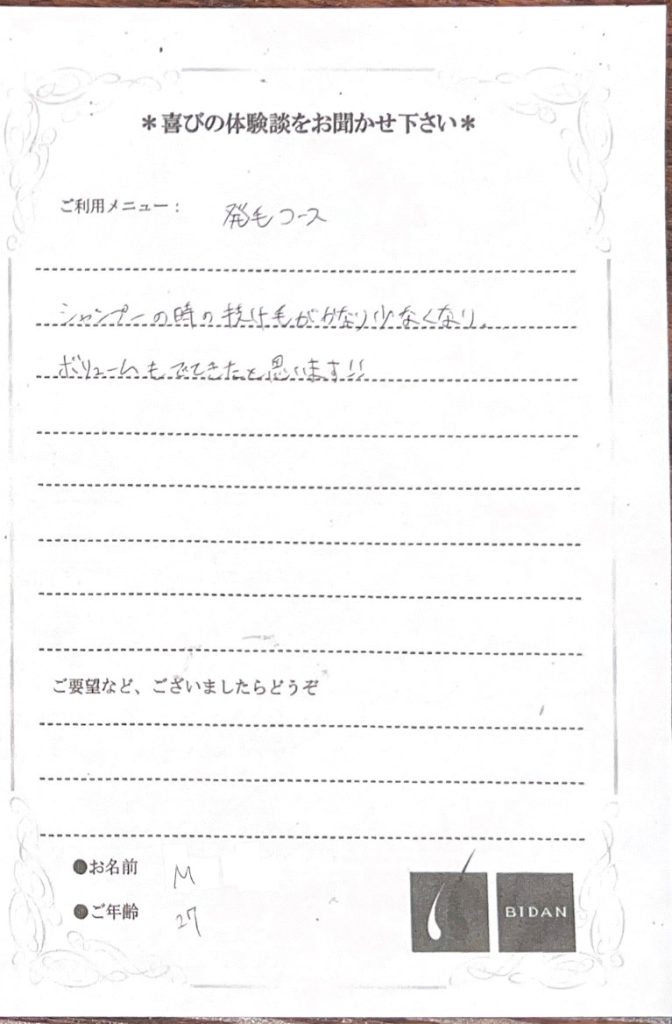 ＊喜びの体験談をお聞かせ下さい＊
ご利用メニュー： 発毛コース
シャンプーの時の抜け毛がかなり少なくなり、
ボリュームもでてきたと思います!!
ご要望など、ございましたらどうぞ
●お名前 M
●ご年齢 27
BIDAN